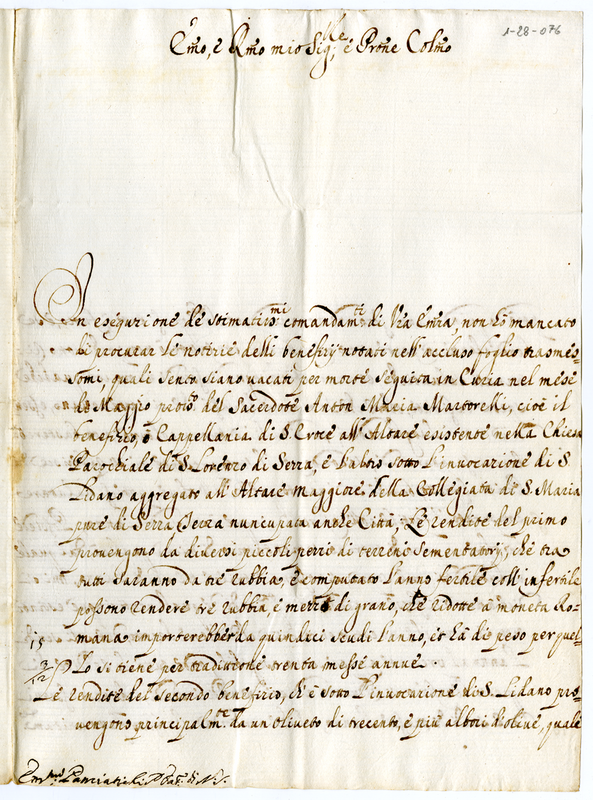 1-28-076
Em̃o, e Rm̃o mio Sig.re, e Prõne Colm̃o
In esequzione de stimatiss.mi comandam.ti di Vr̃a Em̃za, non hò mancato
di procurar le notizie delli beneficij notati nell'accluso foglio trasmes-
somi, quali sento siano vacati per morte seguita in Curia nel mese
di Maggio pross.o del Sacerdote Anton Maria Martorelli, cioè il
beneficio, ò Cappellania di S. Croce all'Altare esistente nella Chiesa
Parochiale di S. Lorenzo di Sezza, e l'altro sotto l'invocazione di S.
Lidano aggregato all'Altare maggiore della Collegiata di S. Maria
pure di Sezza nuncupata anche Città; Le rendite del primo
provengono da diversi piccoli pezzi di terreno sementatorij, che tra
tutti saranno da trè rubbia, e computato l'anno fertile coll'infertile
possono rendere trè rubbia, e mezzo di grano, che ridotte à moneta Ro-
mana importerebbe da quindici scudi l'anno, et hà di peso per quel-
15
lo si tiene per tradizione trenta messe annue
Le rendite del secondo beneficio, ch'è sotto l'invocazione di S. Lidano pro-
vengono principalm.te da un oliveto di trecento, e più albori d'olive, quale
Panciatichi